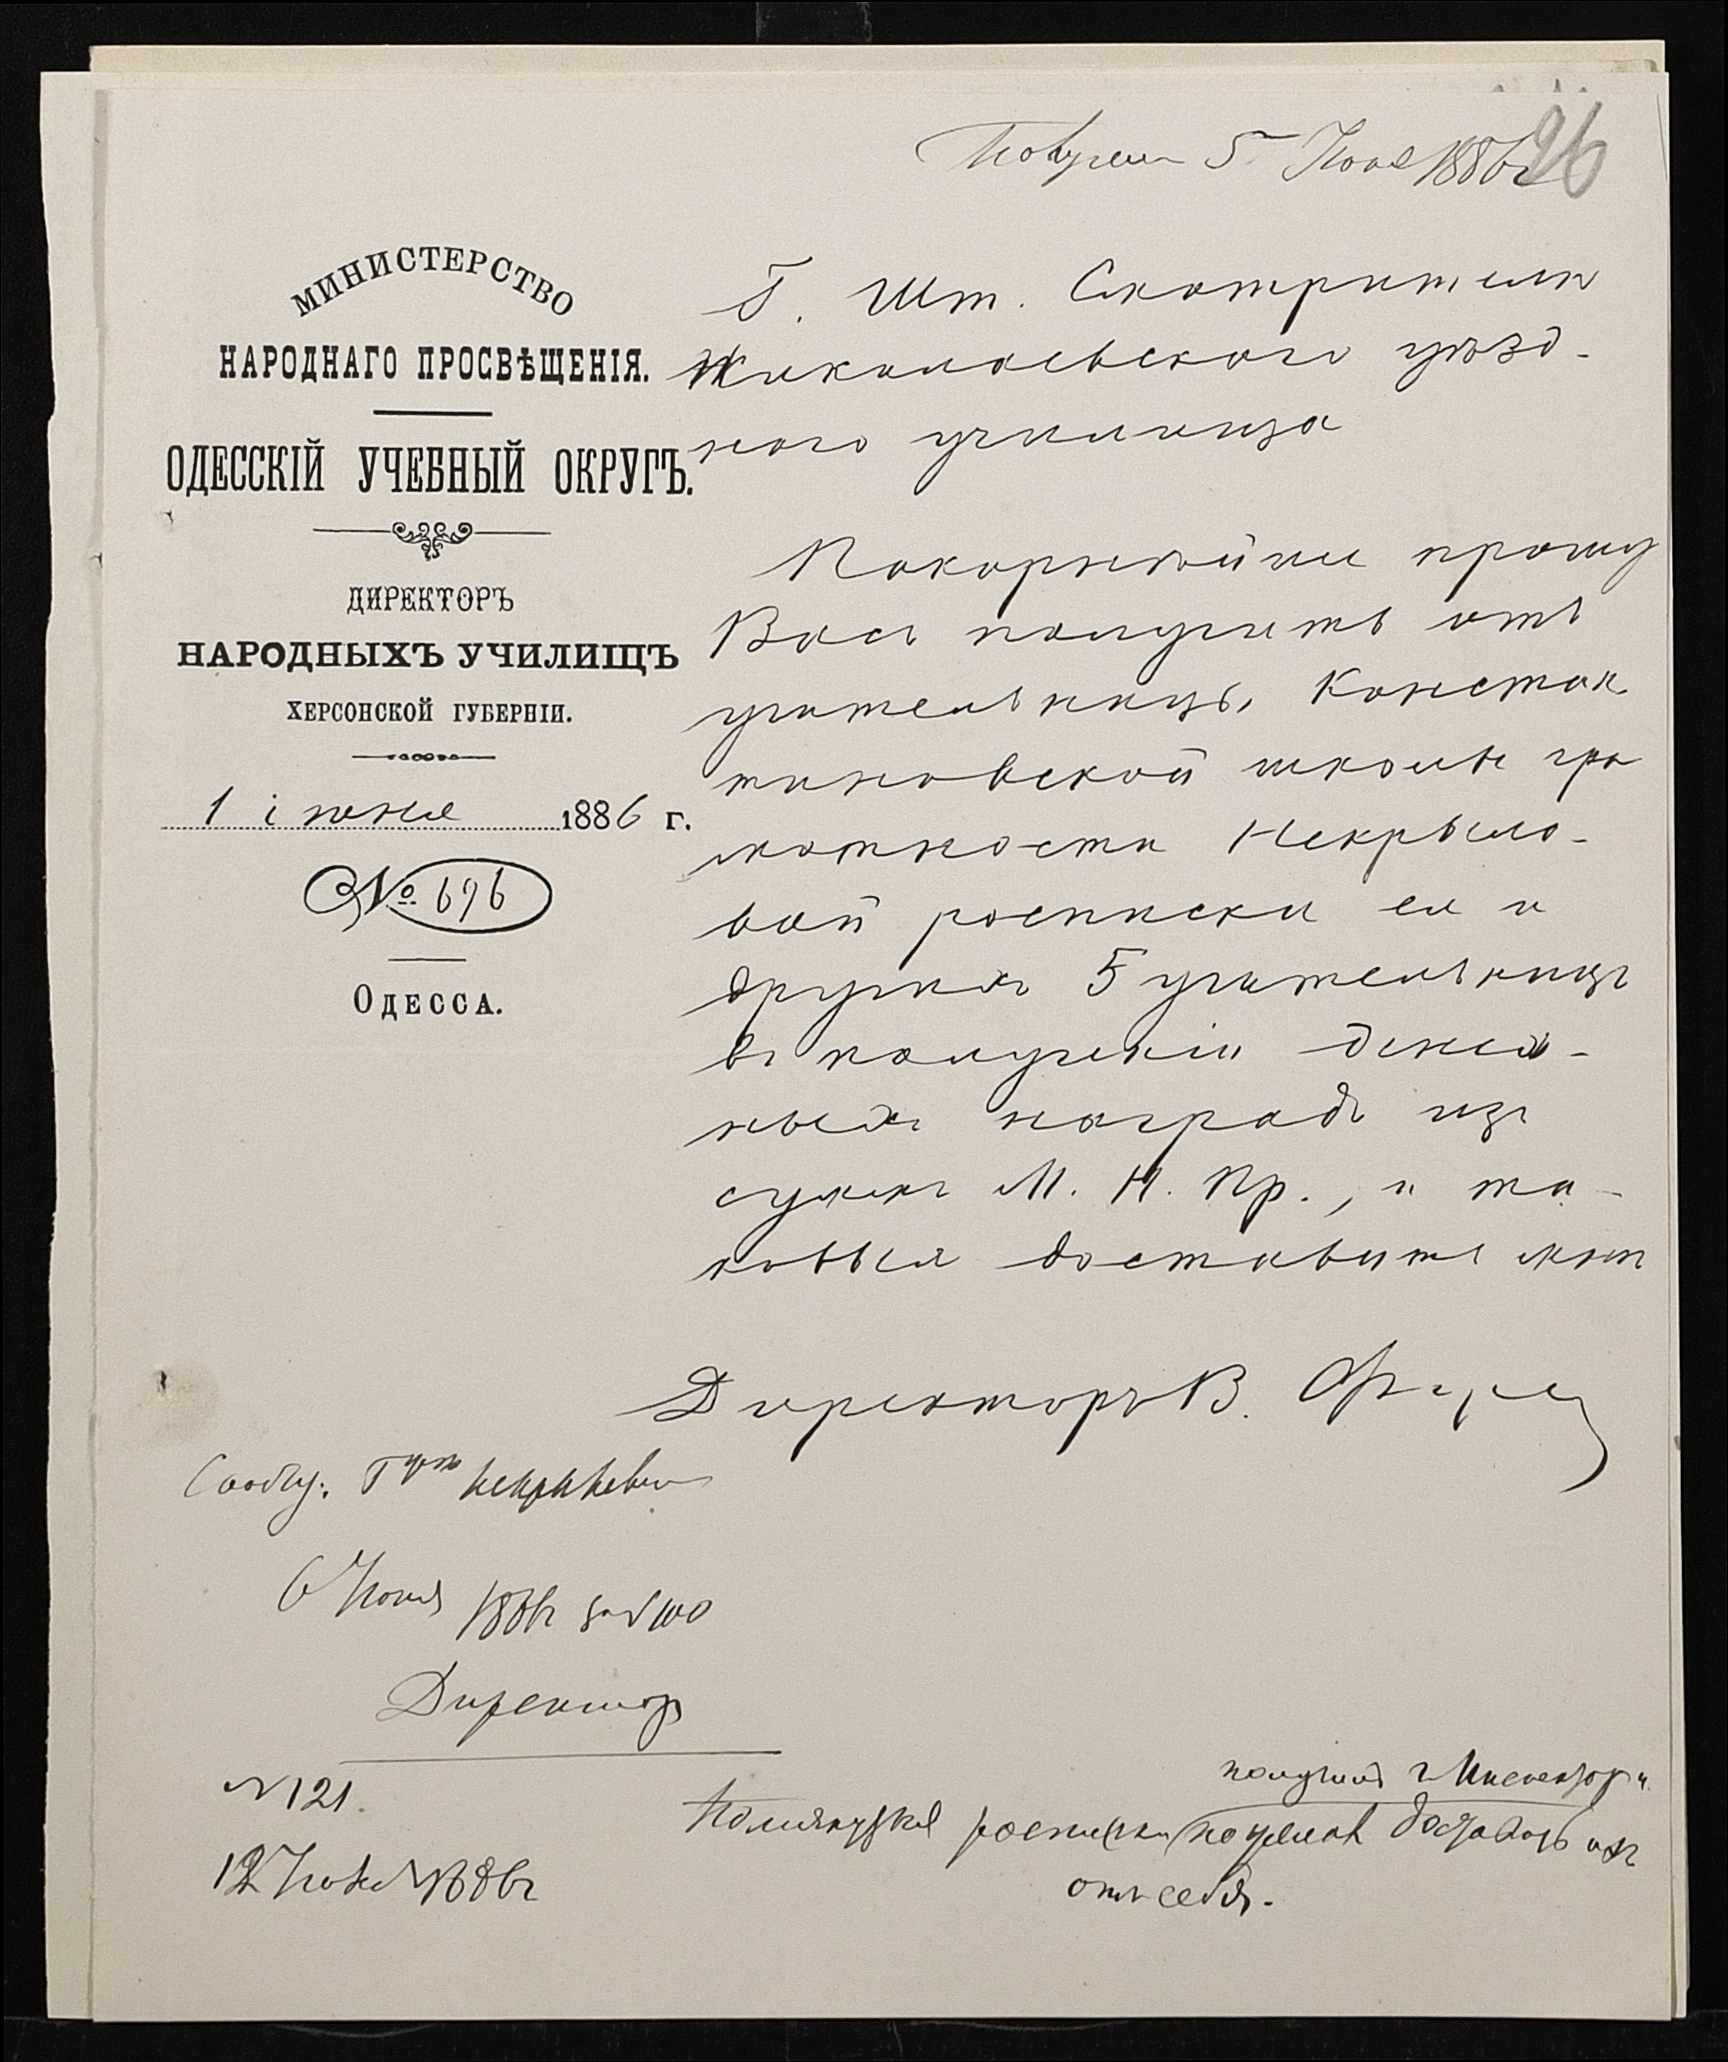 Получен 5 Июня 1886 г
96
МИНИСТЕРСТВО
НАРОДНАГО ПРОСВѢЩЕНІЯ.
ОДЕССКІЙ УЧЕБНЫЙ ОКРУГЪ.
ДИРЕКТОРЪ
НАРОДНЫХЪ УЧИЛИЩЪ
ХЕРСОНСКОЙ ГУБЕРНІИ.
1 іюня 1886 г.
№ 696
ОДЕССА.
Г. Шт. Смотрителю
Николаевского уѣзд-
ного училища
Покорнѣйше прошу
Васъ получить отъ
учительницы Констан
тиновской школы гра
мотности Некрыло-
вой росписки ея и
другихъ 5 учительницъ
въ полученіи денеж-
ныхъ наградъ изъ
суммъ М. Н. Пр., и та-
ковыя доставить мнѣ
Директоръ В.
Сообщ. Г-жѣ
6 Июня 1886 г за № 100
Директор
N 121.
12 Июня 1886 г
получилъ г. Инспекторъ и
росписки доставить ихъ
отъ себя.